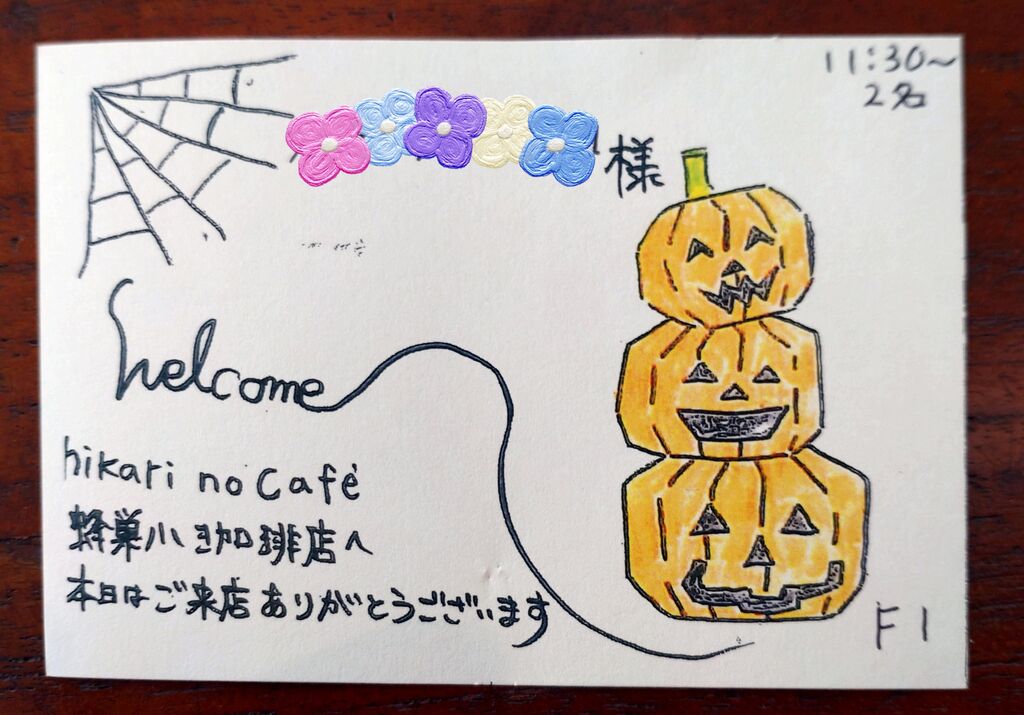 11:30〜
2名
様
welcome
hikari no Café
蜂巣小珈琲店へ
本日はご来店ありがとうございます
F1